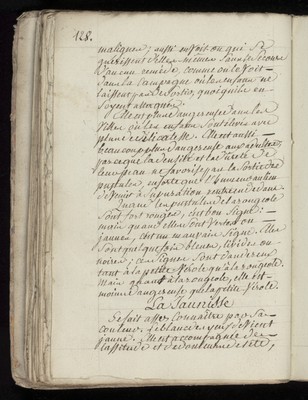 128.
malignes; aussi on voit on qui se
guerissent d'elles memes sans le secours
d'aucun remede, comme on le voit
dans la Campagne où les enfans ne
laissent pas de sortir, quoiqu'ils en
soyent attaqués.
Elle est plus dangereuse dans les
Villes où les enfans sont élevés avec
plus de délicatesse. Elle est aussi
beaucoup plus dangereuse aux adultes,
parceque la densité et la dureté de
leur peau ne favorise pas la sortie des
pustules, en sorte que l'humeur au lieu
de venir à supuration rentre en dedans.
Quand les pustules de la rougeole
sont fort rouges, c'est bon signe:
mais quand elles sont vertes ou
jaunes, c'est un mauvais signe. Elles
sont quelquefois bleues, livides ou
noires; ces signes sont dangereux
tant à la petite Vérole qu'à la rougeole.
Mais quant à la rougeole, elle est
moins dangereuse que la petite Vérole.
La Jaunisse
se fait assés connoître par sa
couleur, le blanc des yeux devient
jaune. Elle est accompagnée de
lassitude et de douleur de tête,